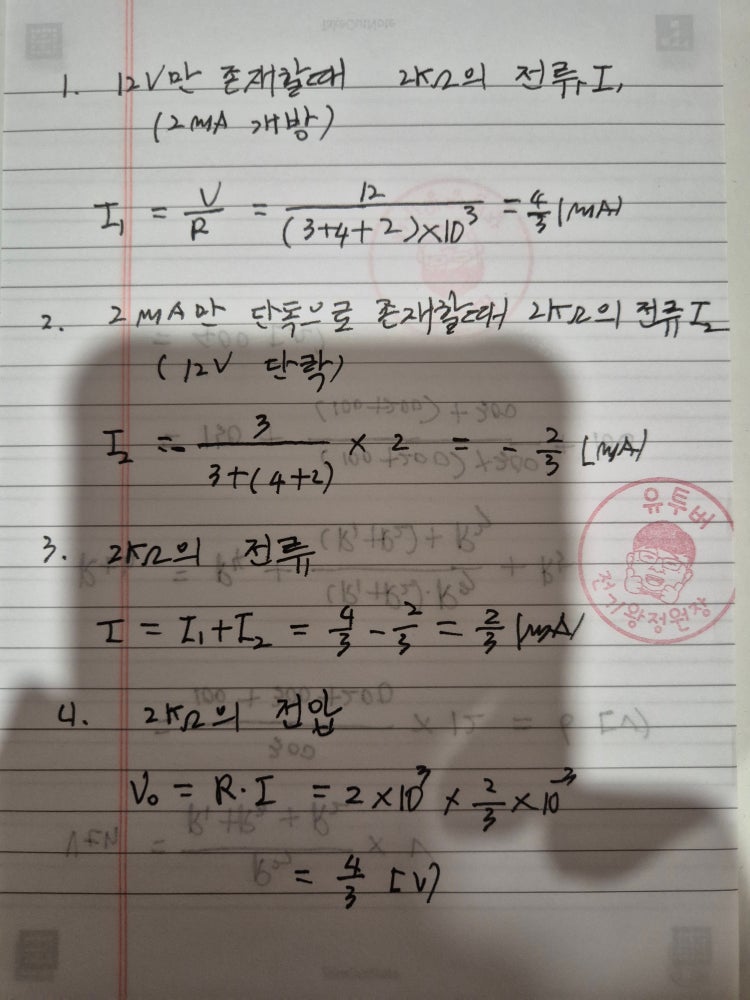 1. 12V만 존재할때 2KΩ의 전류, I₁
(2mA 개방)
I₁ = V/R = 12/((3+4+2)×10³) = 4/3 [mA]
2. 2mA만 단독으로 존재할때 2KΩ의 전류 I₂
(12V 단락)
I₂ = - 3/(3+(4+2)) × 2 = - 2/3 [mA]
3. 2KΩ의 전류
I = I₁+I₂ = 4/3 - 2/3 = 2/3 [mA]
유투버
전기왕정원장
4. 2KΩ의 전압
V₀ = R·I = 2×10³ × 2/3 × 10⁻³
= 4/3 [V]